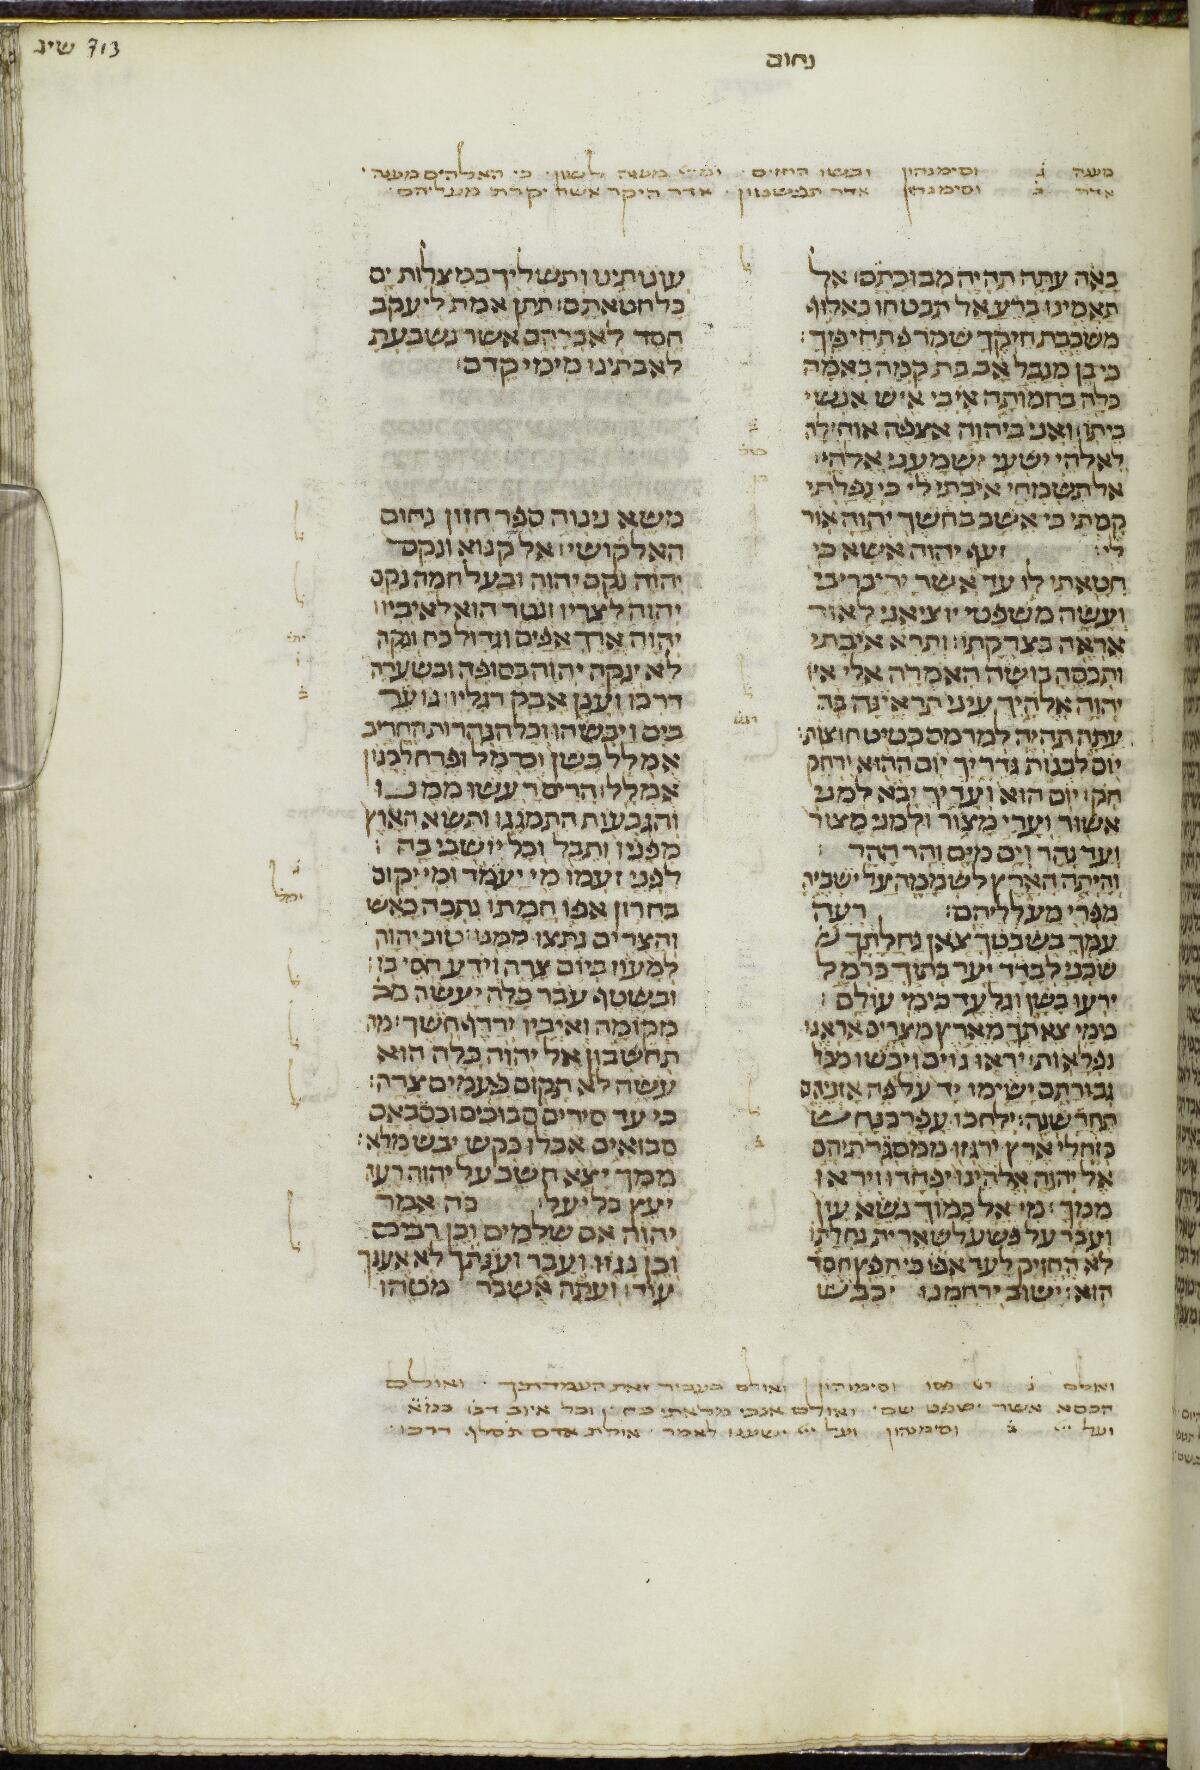 713 שיג
נחום
מענה ג וסימנהון ובושו החזים ומיי מענה לשון כי האלהים מענה
אדר ב וסימנהון אדר תפשטון אדר היקר אשר יקרתי מעליהם
באה עתה תהיה מבוכתם׃ אל
תאמינו ברע אל תבטחו באלוף
משכבת חיקך שמר פתחי פיך׃
כי בן מנבל אב בת קמה באמה
כלה בחמותה איבי איש אנשי
ביתו׃ ואני ביהוה אצפה אוחילה
לאלהי ישעי ישמעני אלהי׃
אל תשמחי איבתי לי כי נפלתי
קמתי כי אשב בחשך יהוה אור
לי׃ זעף יהוה אשא כי
חטאתי לו עד אשר יריב ריבי
ועשה משפטי יוציאני לאור
אראה בצדקתו׃ ותרא איבתי
ותכסה בושה האמרה אלי איו
יהוה אלהיך עיני תראינה בה
עתה תהיה למרמס כטיט חוצות׃
יום לבנות גדריך יום ההוא ירחק
חק׃ יום הוא ועדיך יבא למני
אשור וערי מצור ולמני מצור
ועד נהר וים מים והר ההר׃
והיתה הארץ לשממה על ישביה
מפרי מעלליהם׃ רעה
עמך בשבטך צאן נחלתך ש
שכני לבדד יער בתוך כרמל
ירעו בשן וגלעד כימי עולם׃
כימי צאתך מארץ מצרים אראנו
נפלאות׃ יראו גוים ויבשו מכל
גבורתם ישימו יד על פה אזניהם
תחרשנה׃ ילחכו עפר כנחש
כזחלי ארץ ירגזו ממסגרתיהם
אל יהוה אלהינו יפחדו ויראו
ממך׃ מי אל כמוך נשא עון
ועבר על פשע לשארית נחלתו
לא החזיק לעד אפו כי חפץ חסד
הוא׃ ישוב ירחמנו יכבש
עונתינו ותשליך במצלות ים
כל חטאתם׃ תתן אמת ליעקב
חסד לאברהם אשר נשבעת
לאבתינו מימי קדם׃
משא נינוה ספר חזון נחום
האלקושי׃ אל קנוא ונקם
יהוה נקם יהוה ובעל חמה נקם
יהוה לצריו ונטר הוא לאיביו׃
יהוה ארך אפים וגדול כח ונקה
לא ינקה יהוה בסופה ובשערה
דרכו וענן אבק רגליו׃ גוער
בים ויבשהו וכל הנהרות החריב
אמלל בשן וכרמל ופרח לבנון
אמלל׃ הרים רעשו ממנו
והגבעות התמגגו ותשא הארץ
מפניו ותבל וכל יושבי בה׃
לפני זעמו מי יעמד ומי יקום
בחרון אפו חמתו נתכה כאש
והצרים נתצו ממנו׃ טוב יהוה
למעוז ביום צרה וידע חסי בו׃
ובשטף עבר כלה יעשה
מקומה ואיביו ירדף חשך׃ מה
תחשבון אל יהוה כלה הוא
עשה לא תקום פעמים צרה׃
כי עד סירים סבוכים וכסבאם
סבואים אכלו כקש יבש מלא׃
ממך יצא חשב על יהוה רעה
יעץ בליעל׃ כה אמר
יהוה אם שלמים וכן רבים
וכן נגזו ועבר וענתך לא אענך
עוד׃ ועתה אשבר מטהו
ואולם וסימנהון ואולם בעבור זאת העמדתיך ואולם
הכסא אשר ישפט שם ואולם אנכי מלאתי כח וכל איוב
ועל יי ב וסימנהון ועל יי ישענו לאמר אולת אדם תסלף דרכו